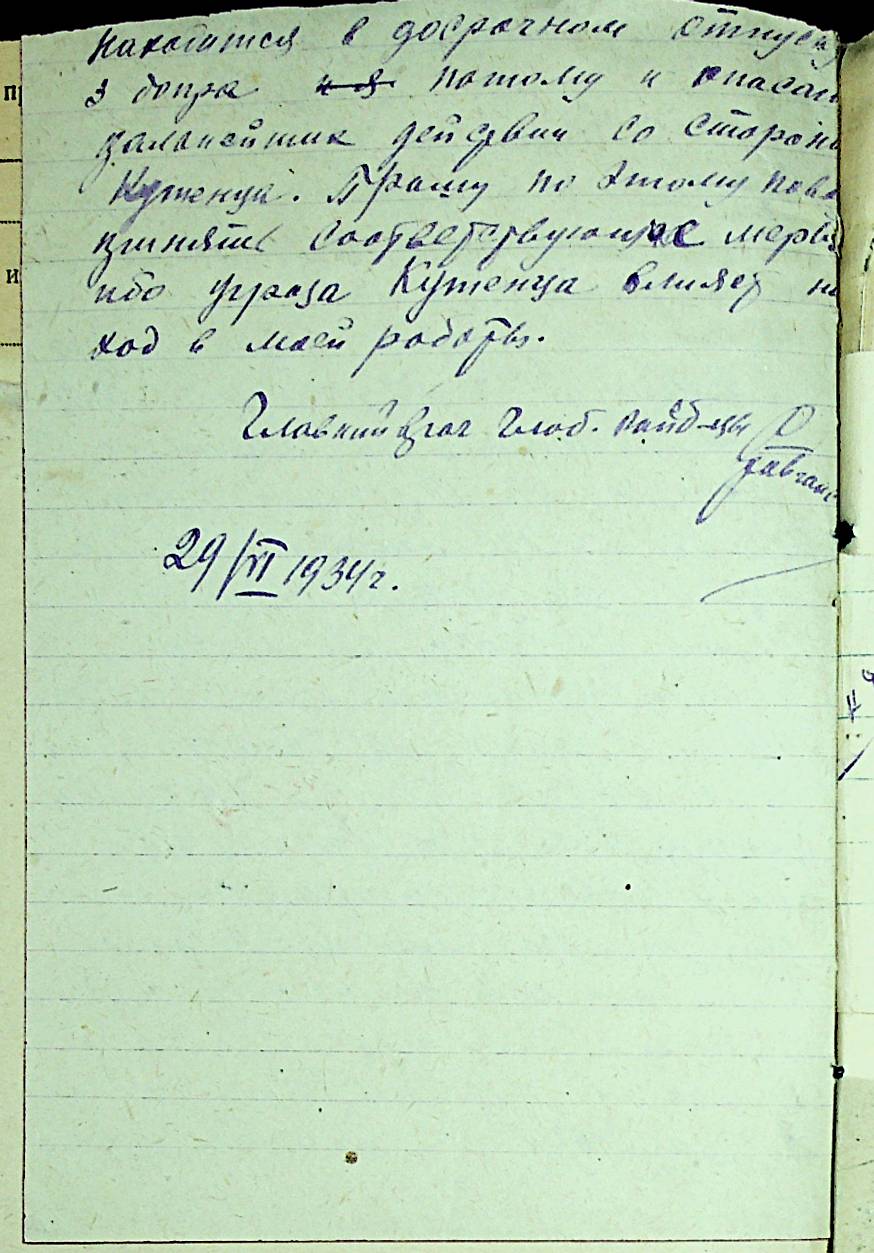 находится в досрочном отпуску
з допра и я потому и опасаю
дальнейших действий со сторон
Куженца. Прашу по этому пово
принять соответствующие меры
ибо угроза Куженца влияет на
ход в моей работы.
Главний врач Глоб. райб-цы
29/VI 1934 г.